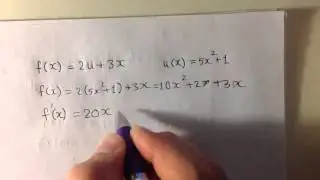 f(x) = 2u + 3x u(x) = 5x² + 1
f(x) = 2(5x² + 1) + 3x = 10x² + 2 + 3x
f'(x) = 20x